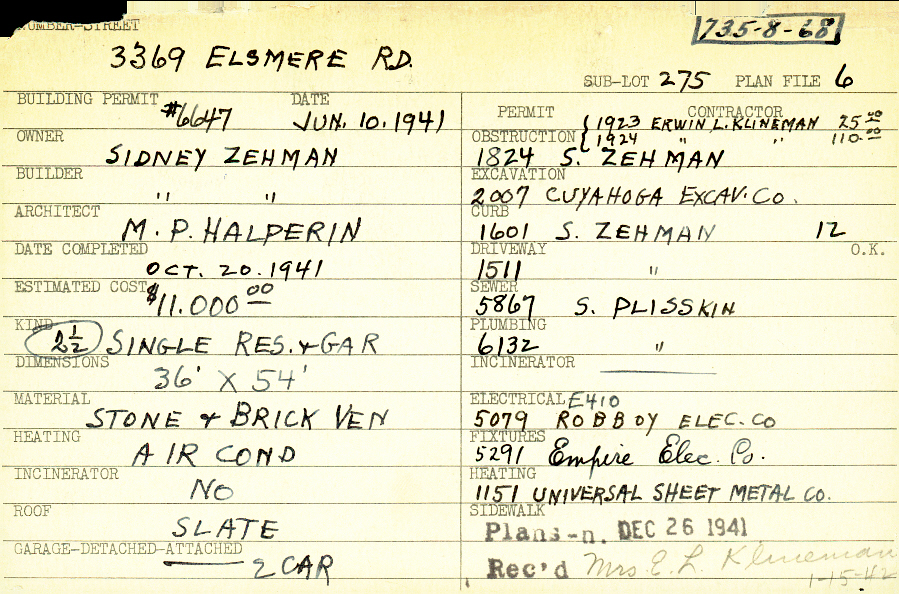 NUMBER-STREET
735-8-68
3369 ELSMERE RD.
SUB-LOT 275 PLAN FILE 6
BUILDING PERMIT #6647 DATE JUN. 10. 1941
OWNER
SIDNEY ZEHMAN
BUILDER
" "
ARCHITECT
M. P. HALPERIN
DATE COMPLETED
OCT. 20. 1941
ESTIMATED COST
$11.000 00
KIND
2 1/2 SINGLE RES. & GAR
DIMENSIONS
36' X 54'
MATERIAL
STONE & BRICK VEN
HEATING
AIR COND
INCINERATOR
NO
ROOF
SLATE
GARAGE-DETACHED-ATTACHED
2 CAR
PERMIT CONTRACTOR
1923 ERWIN L. KLINEMAN 25 00
OBSTRUCTION { 1924 " " 110. 00
1824 S. ZEHMAN
EXCAVATION
2007 CUYAHOGA EXCAV. CO.
CURB
1601 S. ZEHMAN 12
DRIVEWAY O.K.
1511 "
SEWER
5867 S. PLISSKIN
PLUMBING
6132 "
INCINERATOR
ELECTRICAL E410
5079 ROBBOY ELEC. CO
FIXTURES
5291 Empire Elec. Co.
HEATING
1151 UNIVERSAL SHEET METAL CO.
SIDEWALK
Plans-n. DEC 26 1941
Rec'd Mrs. E. L. Klineman
1-15-42